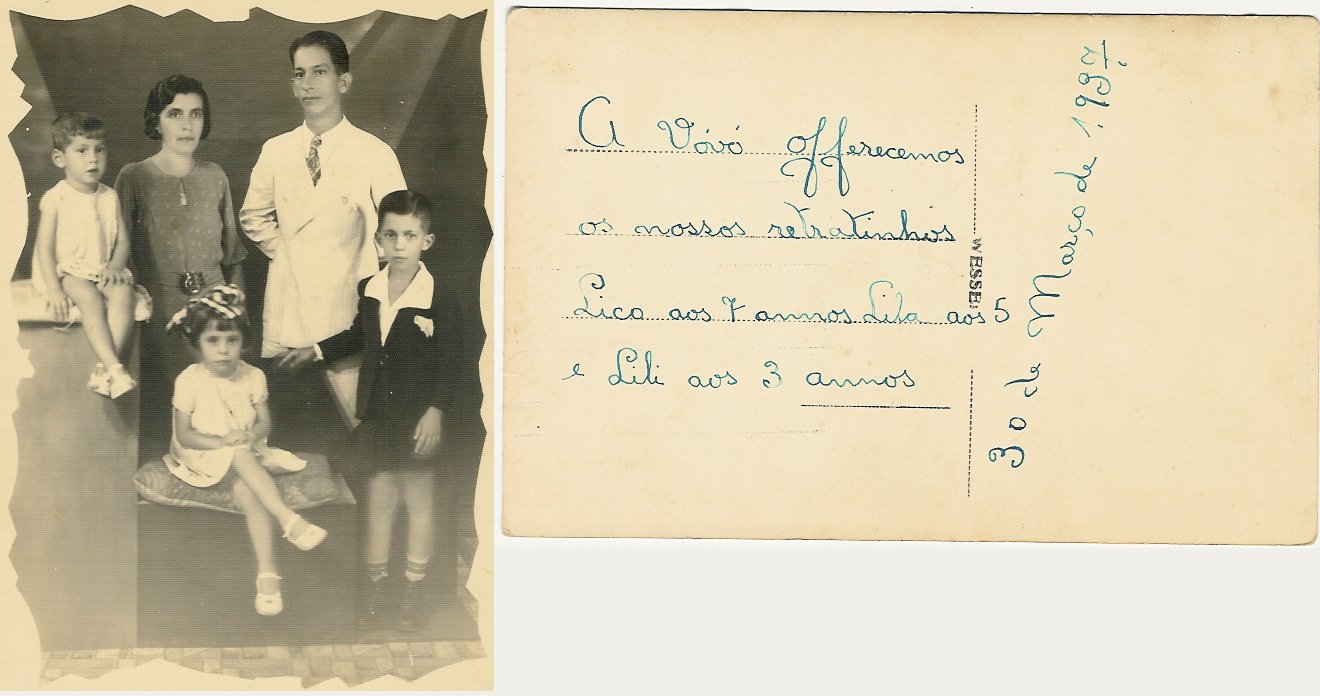 A Vóvó offerecemos
os nossos retratinhos
Lico aos 7 annos Lila aos 5
e Lili aos 3 annos
WESSEL
30 de Março de 1937